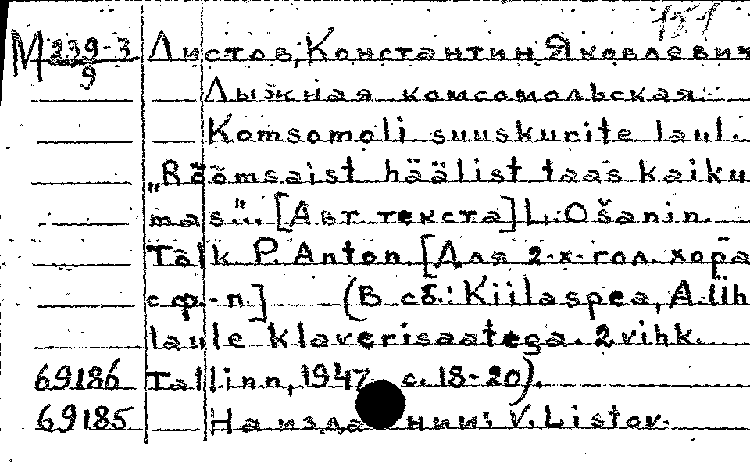 151
М 239-3 Листов, Константин Яковлевич
9
Лыжная комсомольская.
Komsomoli suuskurite laul.
"Rõõmsaist häälist taas kaiku-
mas". [Авт. текста] L. Ošanin.
Talk P. Anton. [Для 2-х-гол. хора
с ф.-п.] (В сб.: Kiilaspea, A. Üh
laule klaverisaatega. 2 vihk.
69186 Tallinn, 1947, с. 18-20).
69185 На издании: V. Listov.